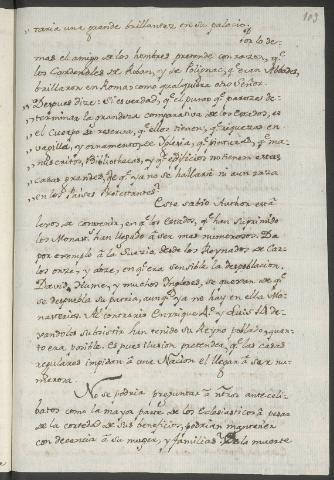 103
„ taria una grande brillantez en su palacio.
Por lo de-
mas el amigo de los hombres pretende con razon, q.e
los Cardenales de Roan, y de Polignac, q.e eran Abbades,
brillaron en Roma como qualquiera otro Señor.
Despues dize: Si es verdad, q.e el punto q.e parece de-
„ terminar la grandeza comparativa de los Estados, es
„ el Cuerpo de reserva, q.e ellos tienen, q.e riquezas en
„ vagilla, y ornamentos de Iglesia, q.e pinturas, q.e ma-
„ nuscritos, Bibliothecas, y q.e edificios no tienen estas
„ casas grandes, de q.e ya no se hallaria ni aun raza
„ en los Paises Protestantes?
Este sabio Author está
lexos de convenir, en q.e los estados, q.e han suprimido
los Monas.s han llegado a ser mas numerosos. Da
por exemplo a la Suecia desde los Reynados de Car-
los onze, y doze, en q.e era sensible la despoblacion.
David Hume, y muchos Ingleses, se quexan de q.e
se despuebla su patria, aunq.e ya no hay en ella Mo-
nasterios. Al contrario Enrrique 4.o y Luis 14 de-
xandolos subsistir han tenido su Reyno poblado, quan-
to era posible. Es pues ilusion pretender, q.e las casas
regulares impiden a una Nacion el llegar a ser nu-
merosa.
No se podria preguntar a n̄ros anteceli-
batos como la mayor parte de los Eclesiasticos a pesar
de la cortedad de sus beneficios, podrian mantener
con decencia a su muger, y familias? De la muerte